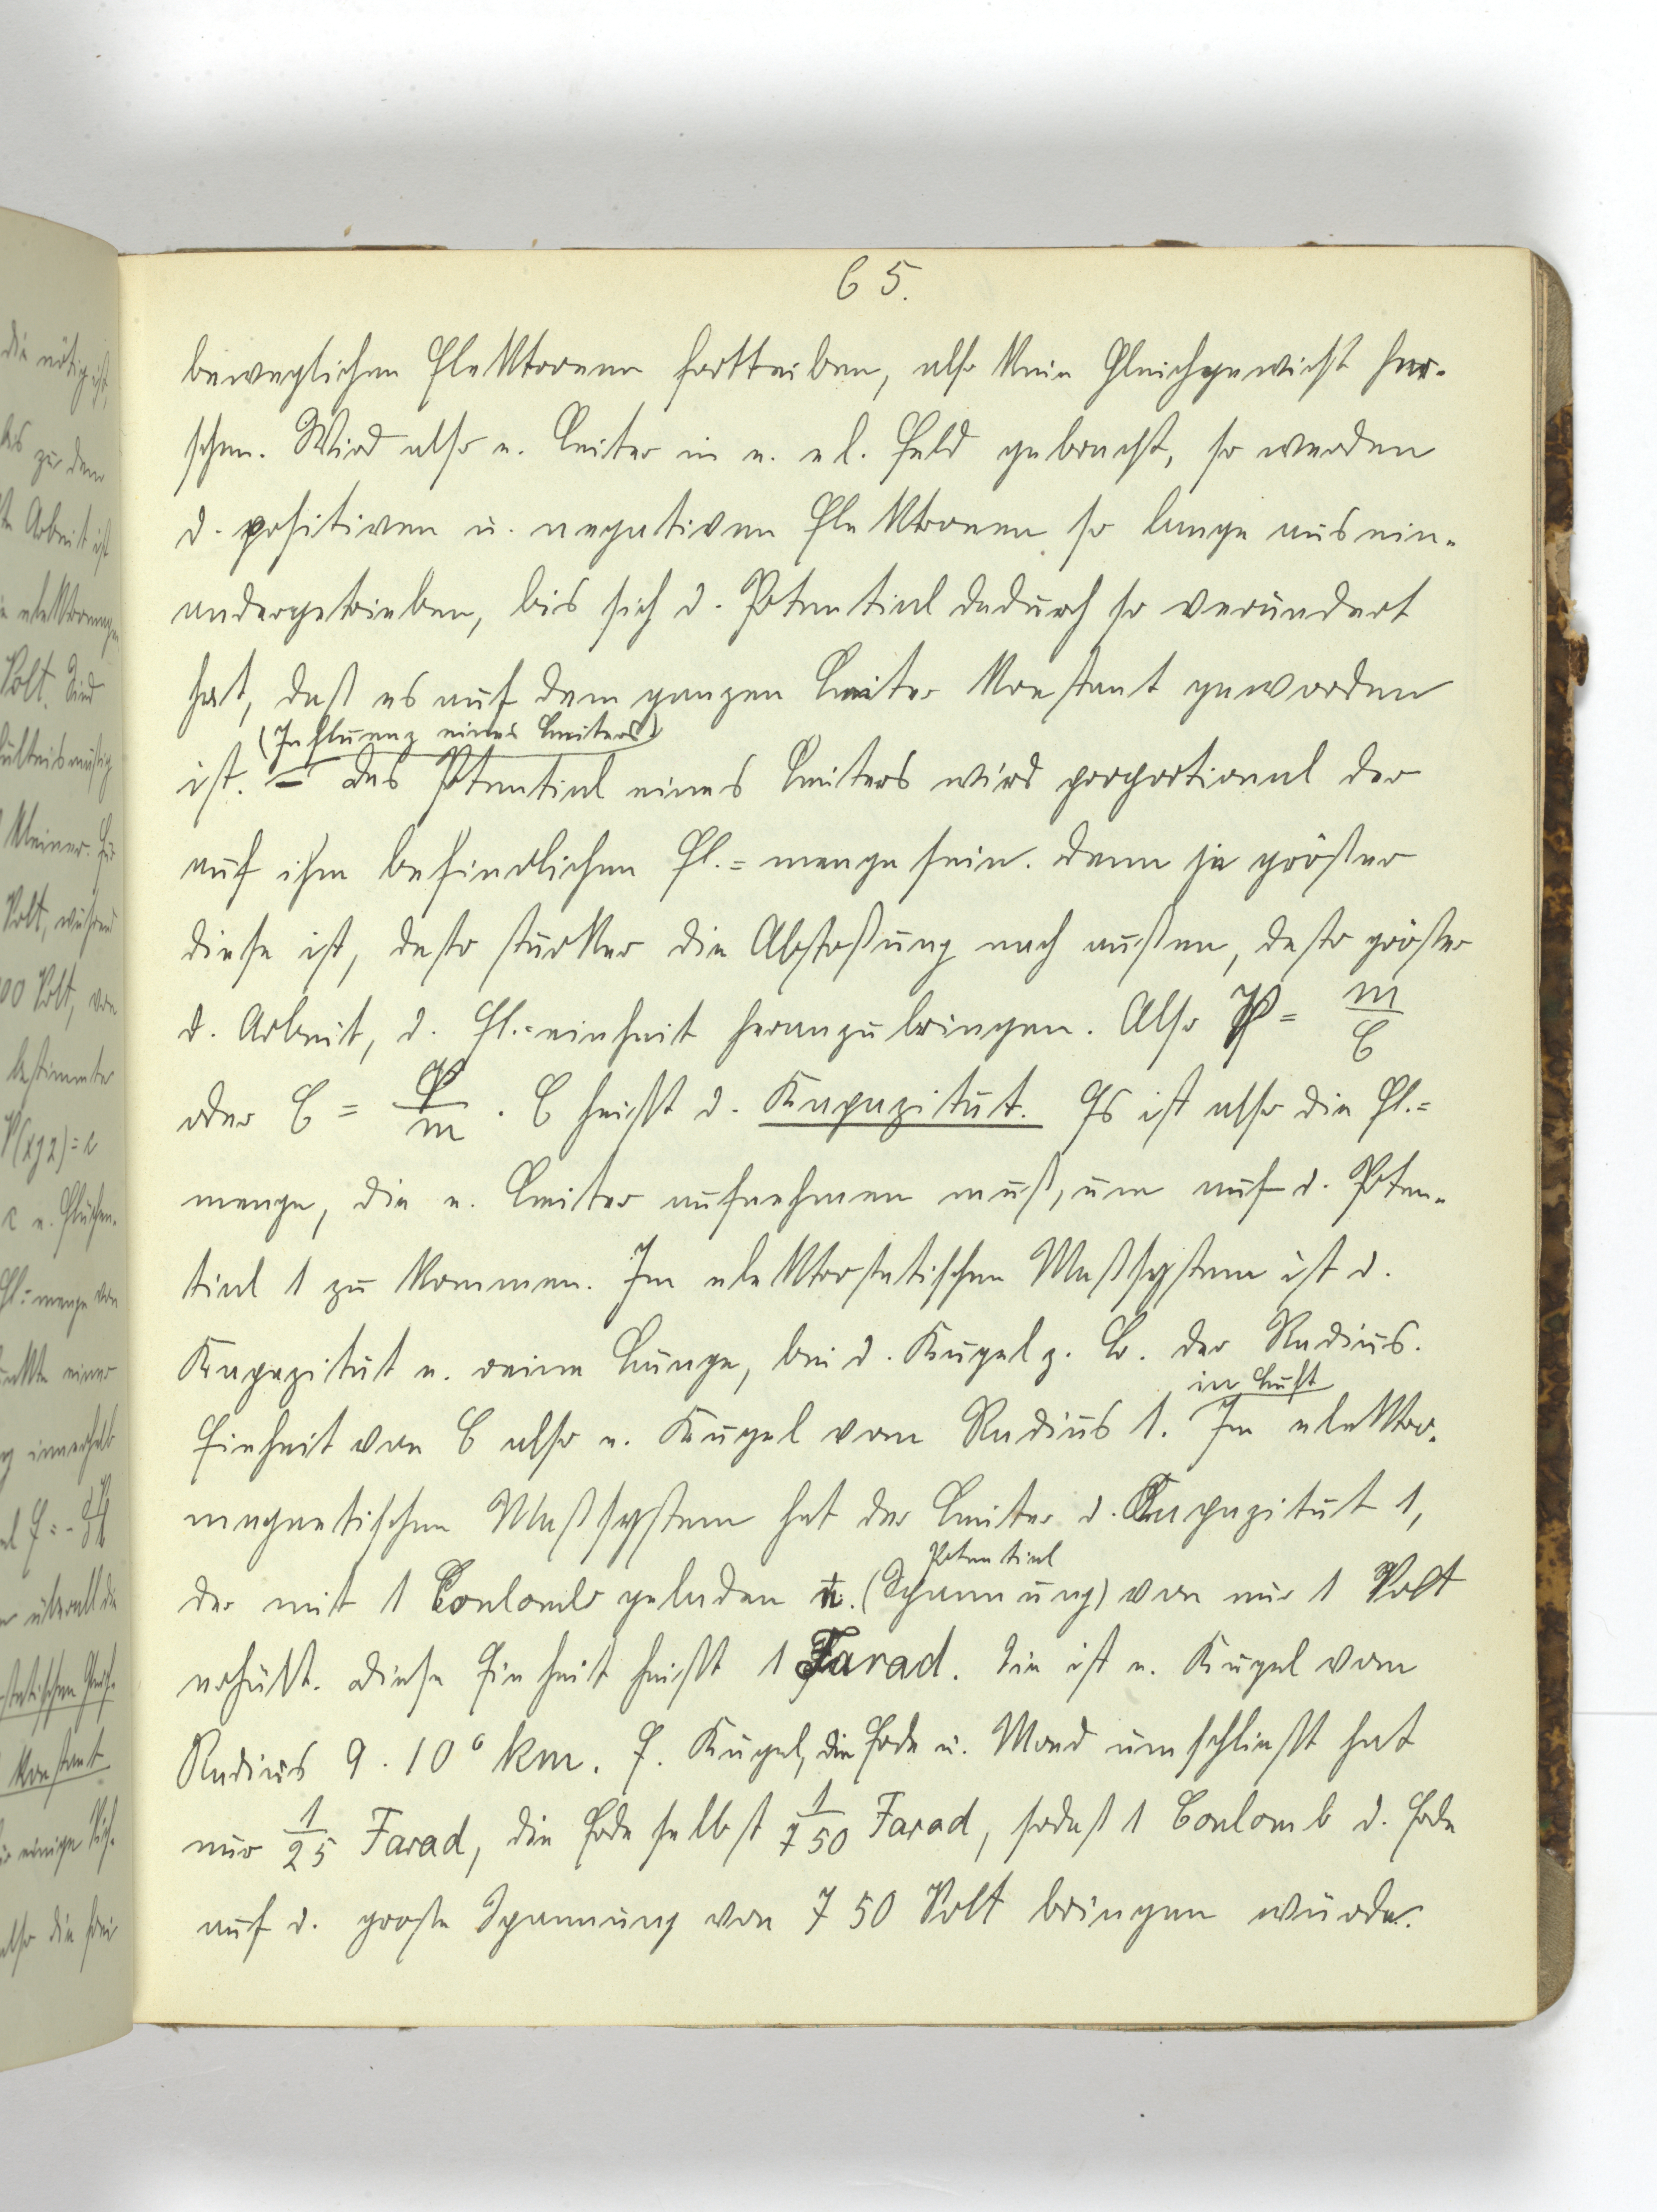 65.
beweglichen Elektronen forttreiben, also kein Gleichgewicht herr-
schen. Wird also e. Leiter in e. el. Feld gebracht, so werden
d. positiven u. negativen Elektronen so lange ausein-
andergetrieben, bis sich d. Potential dadurch so verändert
hat, daß es auf dem ganzen Leiter konstant geworden
(Influenz eines Leiters)
ist. – Das Potential eines Leiters wird proportional der
auf ihm befindlichen El.=menge sein. Denn je größer
diese ist, desto stärker die Abstoßung nach außen, desto größer
d. Arbeit, d. El.=einheit heranzubringen. Also P = m/C
oder C = P/m . C heißt d. Kapazität. Es ist also die El.=
menge, die e. Leiter aufnehmen muß, um auf d. Poten-
tial 1 zu kommen. Im elektrostatischen Maßsystem ist d.
Kapazität e. reine Länge, bei d. Kugel z. B. der Radius.
in Luft
Einheit von C also e. Kugel vom Radius 1. Im elektro-
magnetischen Maßsystem hat der Leiter d. Kapazität 1,
Potential
der mit 1 Coulomb geladen (Spannung) von nur 1 Volt
erhält. Diese Einheit heißt 1 Farad. Sie ist e. Kugel vom
Radius 9 . 10⁶ km. E. Kugel, die Erde u. Mond umschließt hat
nur 1/25 Farad, die Erde selbst 1/750 Farad, sodaß 1 Coulomb d. Erde
auf d. große Spannung von 750 Volt bringen würde.